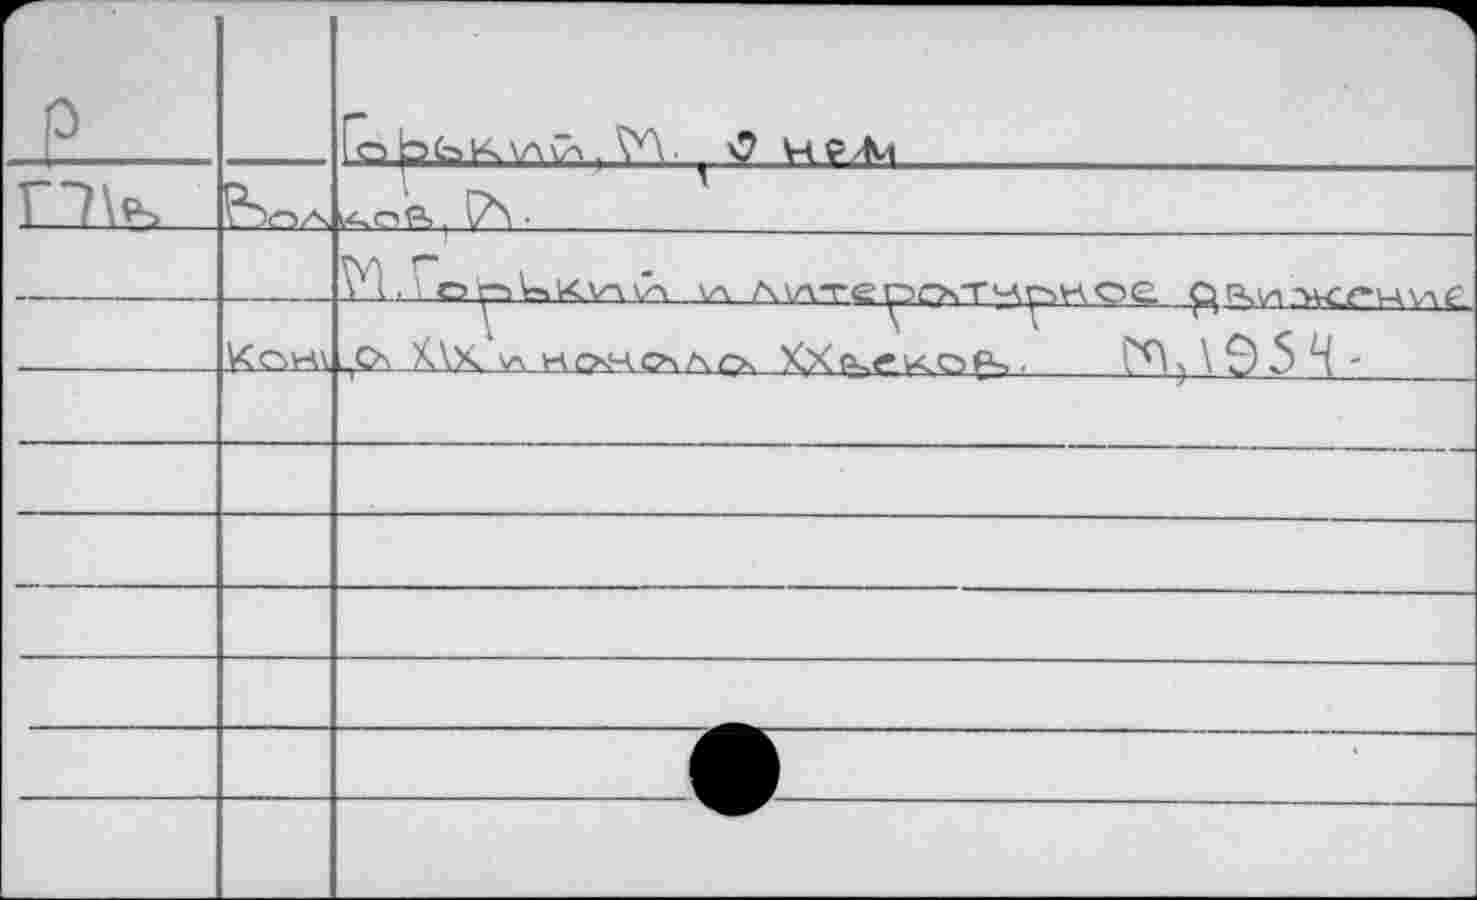 Р Горький, М. о нем
Г71в Волков, А.
М. Горький и литературное движение
конца XIX и начала XX веков. М, 1954-